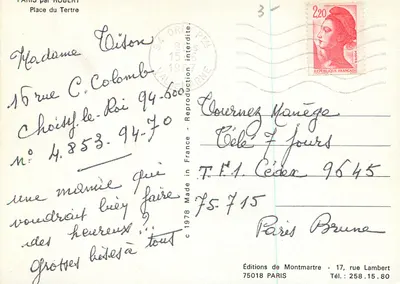 PARIS par ROBERT
Place du Tertre
3-
Madame Tison
16 rue C. Colomb
Choisy. le. Roi 94.600
n° 4.853.94-70
une mamie qui
voudrait bien faire
des heureux!!?
grosses bises à tous
© 1978 Made in France - Reproduction interdite
94 ORLY
VAL DE MARNE
2,20
REPUBLIQUE FRANCAISE
Tournez Manège
Télé 7 Jours
T.F.1. Cedex 9645
75-715
Paris Brune
Éditions de Montmartre - 17, rue Lambert
75018 PARIS Tél. : 258.15.80